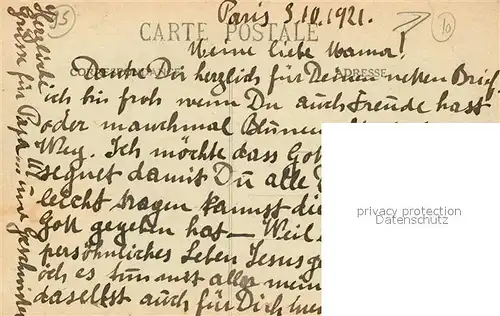 Paris 3.10.1921.
CARTE POSTALE
Meine liebe Mama!
CORRESPONDANCE ADRESSE
Danke Dir herzlich für Deinen netten Brief
ich bin froh wenn Du auch Freude hast
oder manchmal Blumen
Weg. Ich möchte dass Gott
segnet damit Du alle
leicht tragen kannst die
Gott gegeben hat — Weil
persönliches Leben Jesus
ich es tun mit allen mein
daselbst auch für Dich
Herzliche
Grüsse für Papa und Geschwister
95
10
privacy protection
Datenschutz